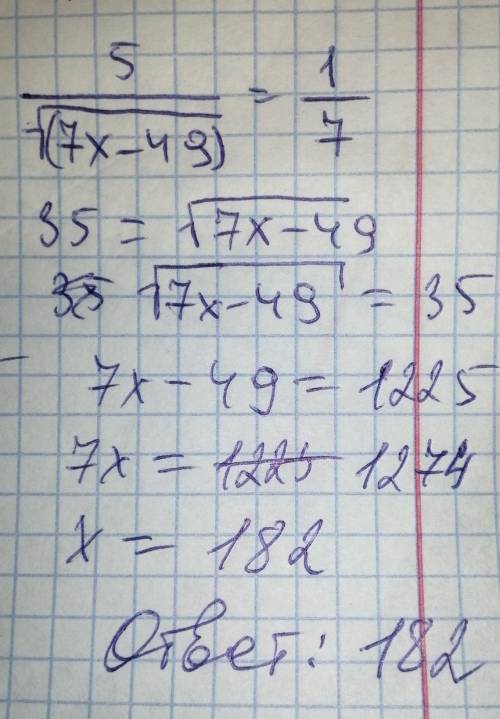 5/√(7x-49) = 1/7
35 = √7x-49
35 √7x-49 = 35
7x-49 = 1225
7x = 1225 1274
x = 182
Ответ: 182